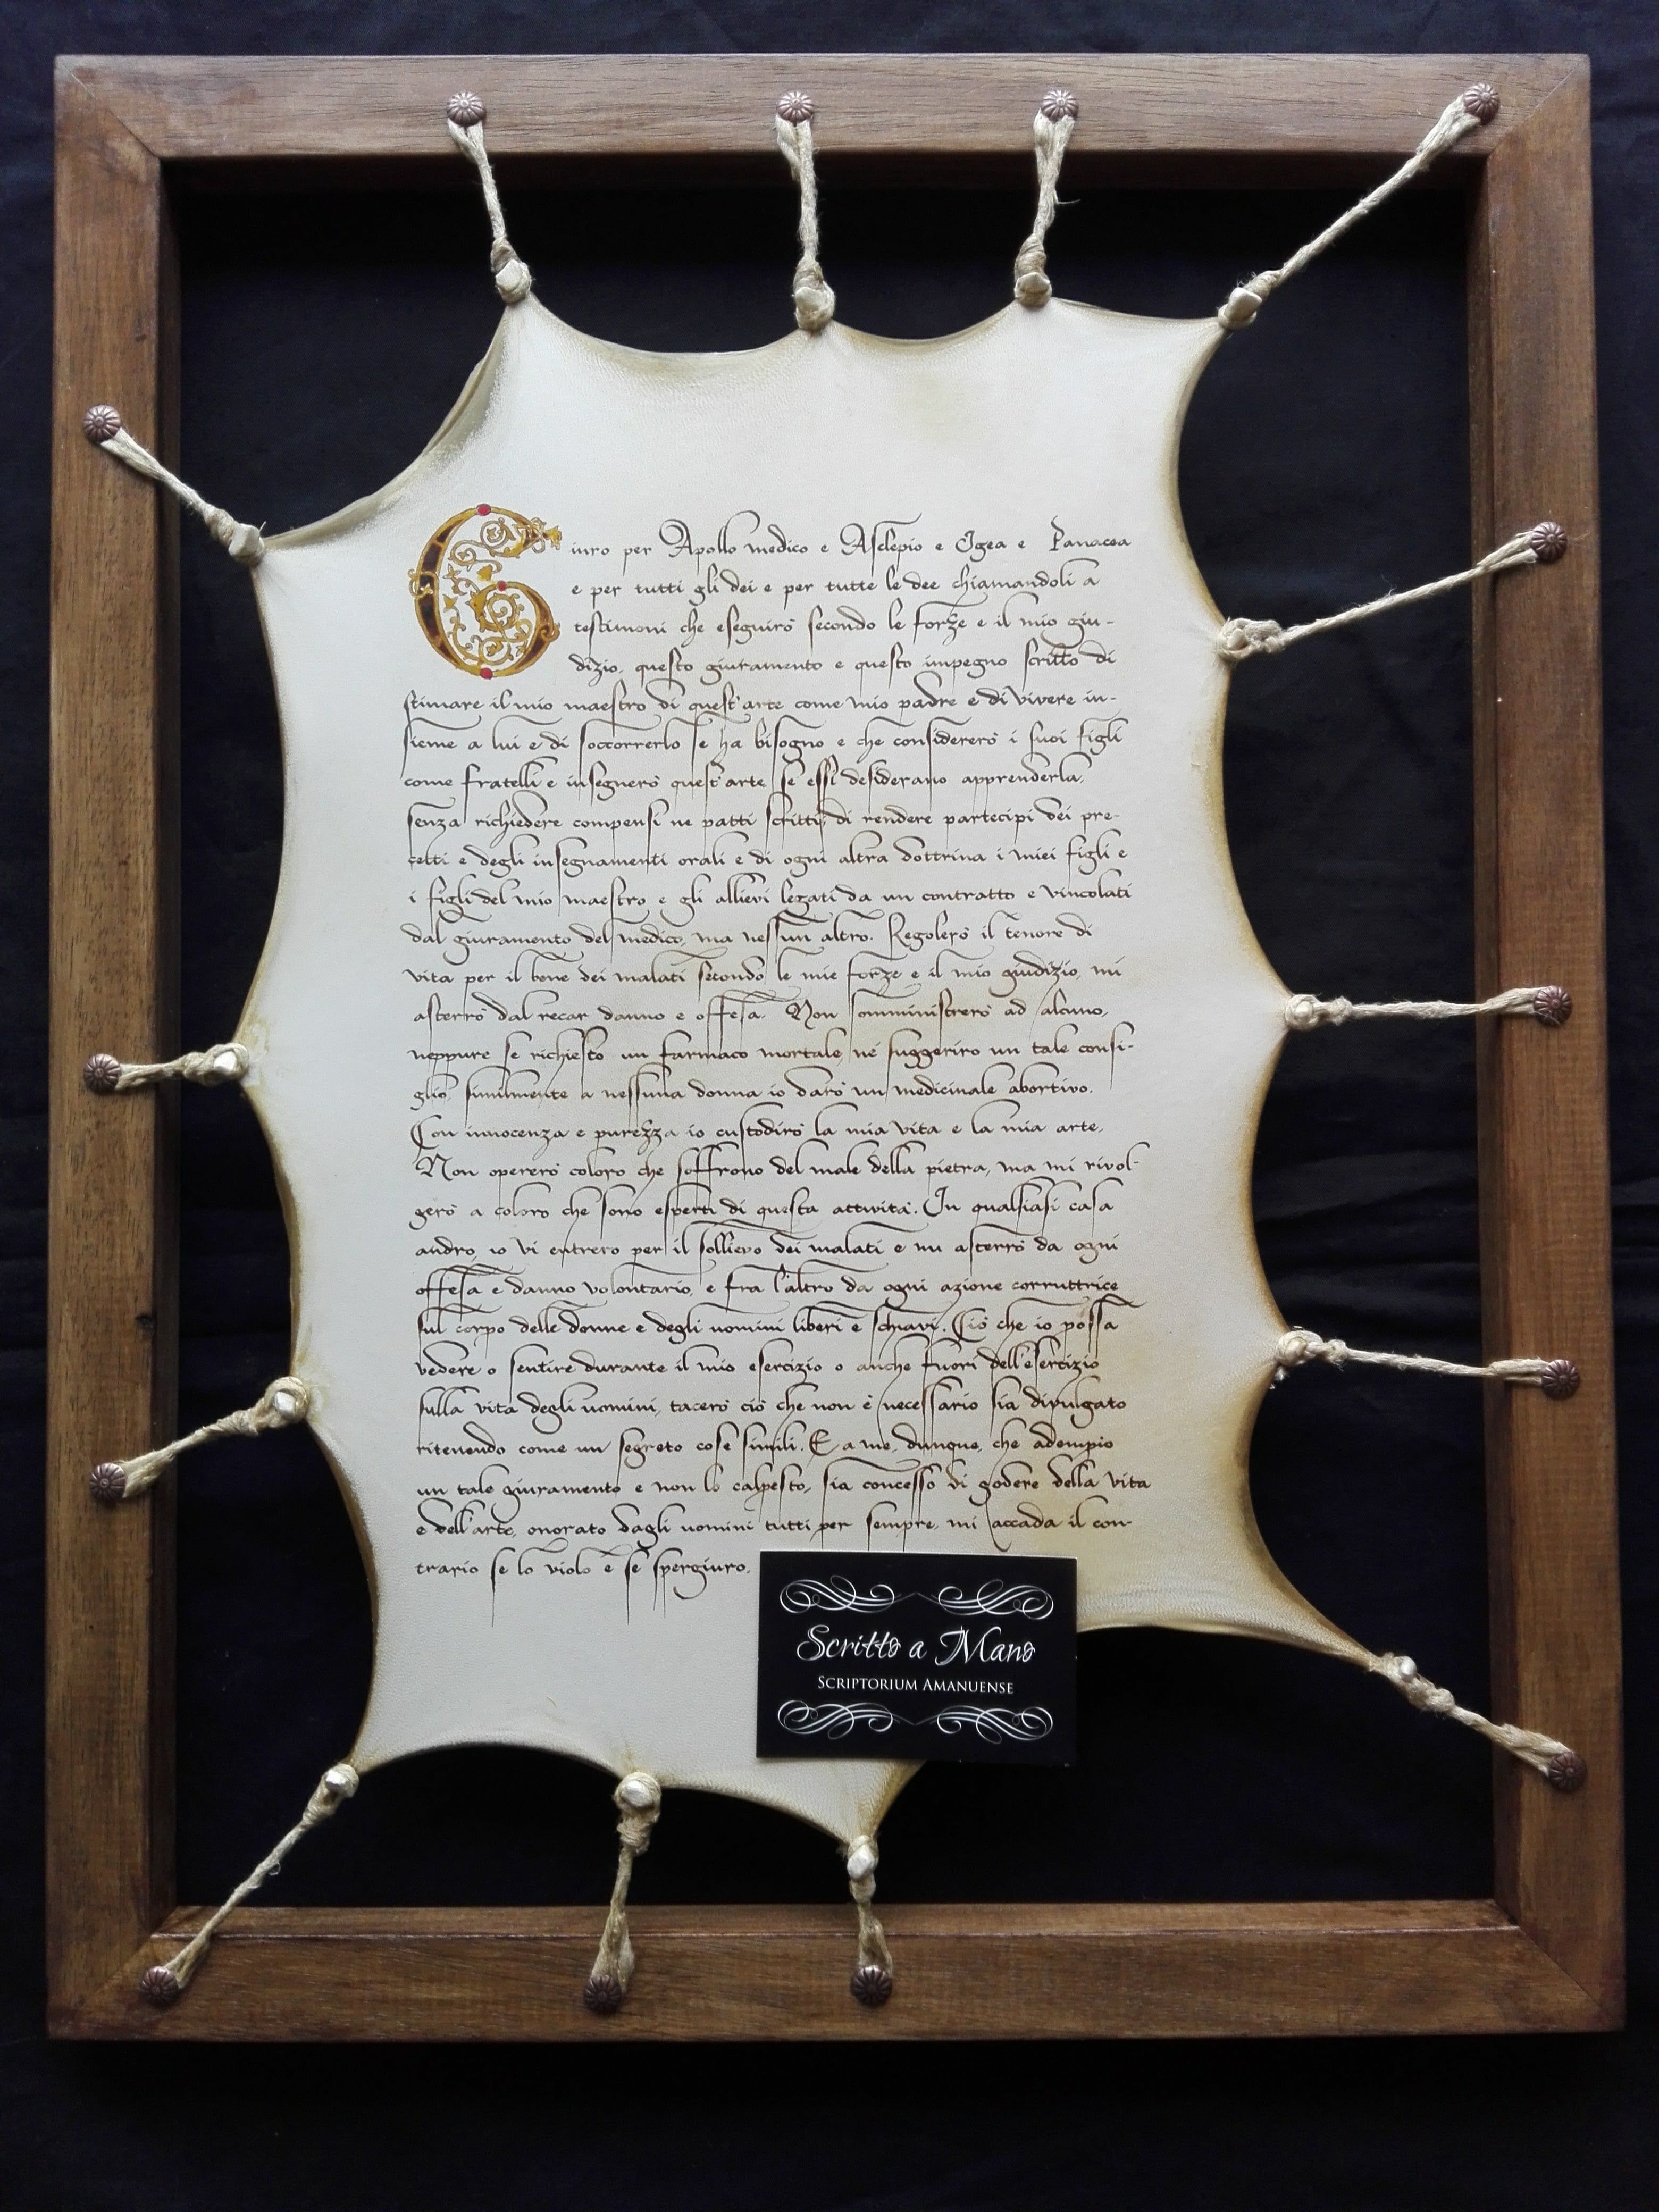 Giuro per Apollo medico e Asclepio e Igea e Panacea
e per tutti gli dei e per tutte le dee chiamandoli a
testimoni che eseguirò secondo le forze e il mio giu-
dizio, questo giuramento e questo impegno scritto di
stimare il mio maestro di quest'arte come mio padre e di vivere in-
sieme a lui e di soccorrerlo se ha bisogno e che considererò i suoi figli
come fratelli e insegnerò quest'arte se essi desiderano apprenderla,
senza richiedere compensi ne patti scritti, di rendere partecipi dei pre-
cetti e degli insegnamenti orali e di ogni altra dottrina i miei figli e
i figli del mio maestro e gli allievi legati da un contratto e vincolati
dal giuramento del medico, ma nessun altro. Regolerò il tenore di
vita per il bene dei malati secondo le mie forze e il mio giudizio, mi
asterrò dal recar danno e offesa. Non somministrerò ad alcuno,
neppure se richiesto un farmaco mortale, né suggerirò un tale consi-
glio, similmente a nessuna donna io darò un medicinale abortivo.
Con innocenza e purezza io custodirò la mia vita e la mia arte.
Non opererò coloro che soffrono del male della pietra, ma mi rivol-
gerò a coloro che sono esperti di questa attività. In qualsiasi casa
andrò, io vi entrerò per il sollievo dei malati e mi asterrò da ogni
offesa e danno volontario, e fra l'altro da ogni azione corruttrice
sul corpo delle donne e degli uomini liberi e schiavi. Ciò che io possa
vedere o sentire durante il mio esercizio o anche fuori dell'esercizio
sulla vita degli uomini, tacerò ciò che non è necessario sia divulgato
ritenendo come un segreto cose simili. E a me, dunque, che adempio
un tale giuramento e non lo calpesto, sia concesso di godere della vita
e dell'arte, onorato dagli uomini tutti per sempre, mi accada il con-
trario se lo violo e se spergiuro.
Scritto a Mano
SCRIPTORIUM AMANUENSE